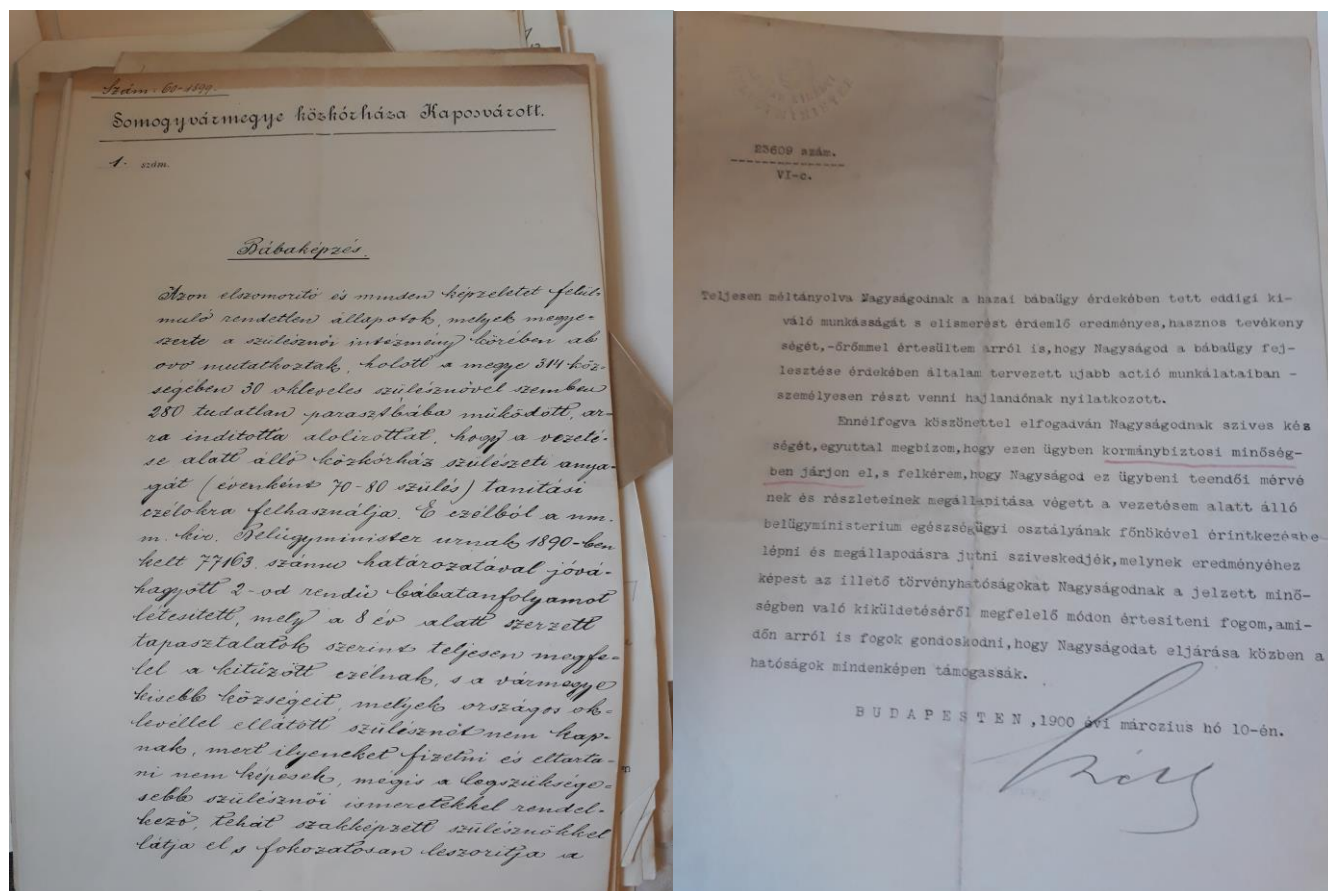 Szám. 60-1899.
Somogyvármegye közkórháza Kaposvárott.
1. szám.
Bábaképzés.
Azon elszomorító és minden képzeletet felül-
muló rendetlen állapotok, melyek megye-
szerte a szülésznői intézmény körében ab
ovo mutatkoztak, holott a megye 314 köz-
ségében 30 okleveles szülésznővel szemben
280 tudatlan parasztbába működött, ar-
ra indította alólirottat, hogy a vezeté-
se alatt álló közkórház szülészeti anya-
gát (évenként 70-80 szülés) tanítási
czélokra felhasználja. E czélból a nm.
m. kir. Belügyminister urnak 1890-ben
kelt 77163. számu határozatával jóvá-
hagyott 2-od rendü bábatanfolyamot
létesített, mely a 8 év alatt szerzett
tapasztalatok szerint teljesen megfe-
lel a kitüzött czélnak, s a vármegye
kisebb községeit, melyek országos ok-
levéllel ellátott szülésznőt nem kap-
nak, mert ilyeneket fizetni és eltarta-
ni nem képesek, mégis a legszüksége-
sebb szülésznői ismeretekkel rendel-
kező, tehát szakképzett szülésznőkkel
látja el s fokozatosan leszorítja a
23609 szám.
VI-c.
Teljesen méltányolva Nagyságodnak a hazai bábaügy érdekében tett eddigi ki-
váló munkásságát s elismerést érdemlő eredményes,hasznos tevékeny
ségét,-örömmel értesültem arról is,hogy Nagyságod a bábaügy fej-
lesztése érdekében általam tervezett ujabb actió munkálataiban -
személyesen részt venni hajlandónak nyilatkozott.
Ennélfogva köszönettel elfogadván Nagyságodnak szives kés
ségét,egyuttal megbizom,hogy ezen ügyben kormánybiztosi minőség-
ben járjon el,s felkérem,hogy Nagyságod ez ügybeni teendői mérvé
nek és részleteinek megállapitása végett a vezetésem alatt álló
belügyministerium egészségügyi osztályának főnökével érintkezésbe
lépni és megállapodásra jutni sziveskedjék,melynek eredményéhez
képest az illető törvényhatóságokat Nagyságodnak a jelzett minő-
ségben való kiküldetéséről megfelelő módon értesiteni fogom,ami-
dőn arról is fogok gondoskodni,hogy Nagyságodat eljárása közben a
hatóságok mindenképen támogassák.
BUDAPESTEN,1900 évi márczius hó 10-én.